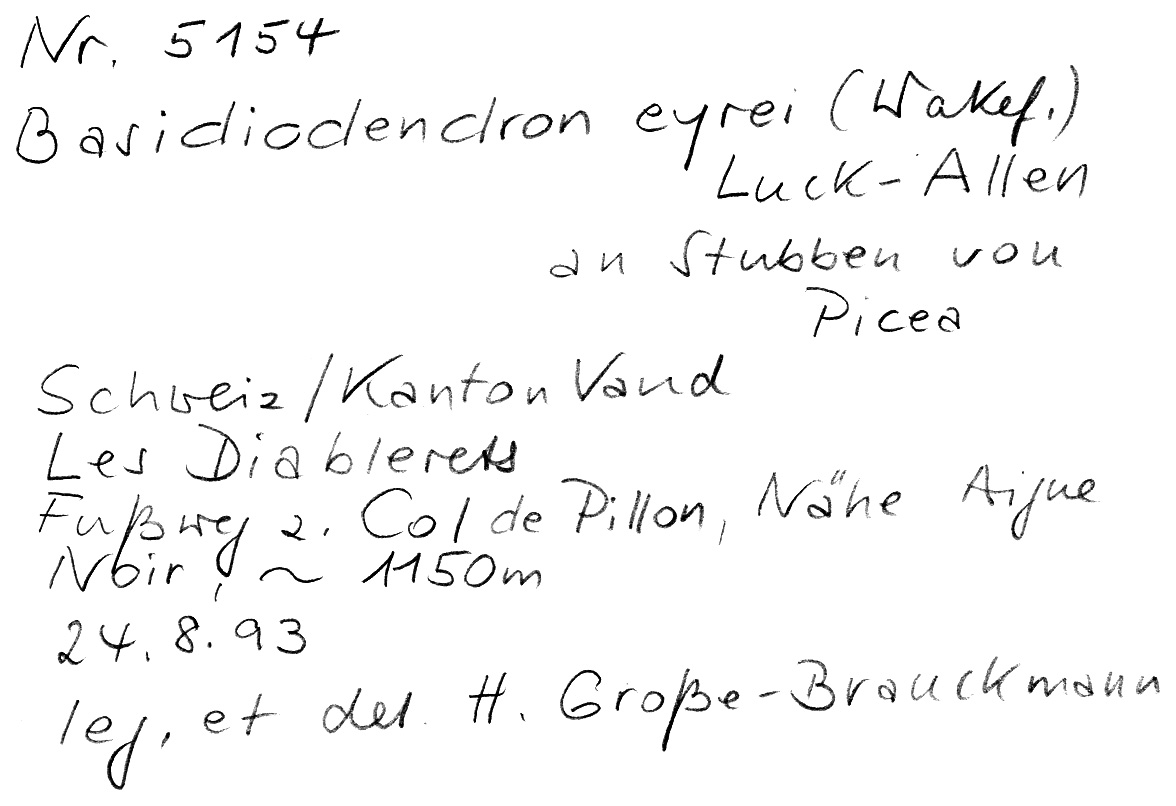 Nr. 5154
Basidiodendron eyrei (Wakef.)
Luck-Allen
an Stubben von
Picea
Schweiz/Kanton Vaud
Les Diablerets
Fußweg z. Col de Pillon, Nähe Aigue
Noir, ~ 1150m
24.8.93
leg. et det. H. Große-Brauckmann